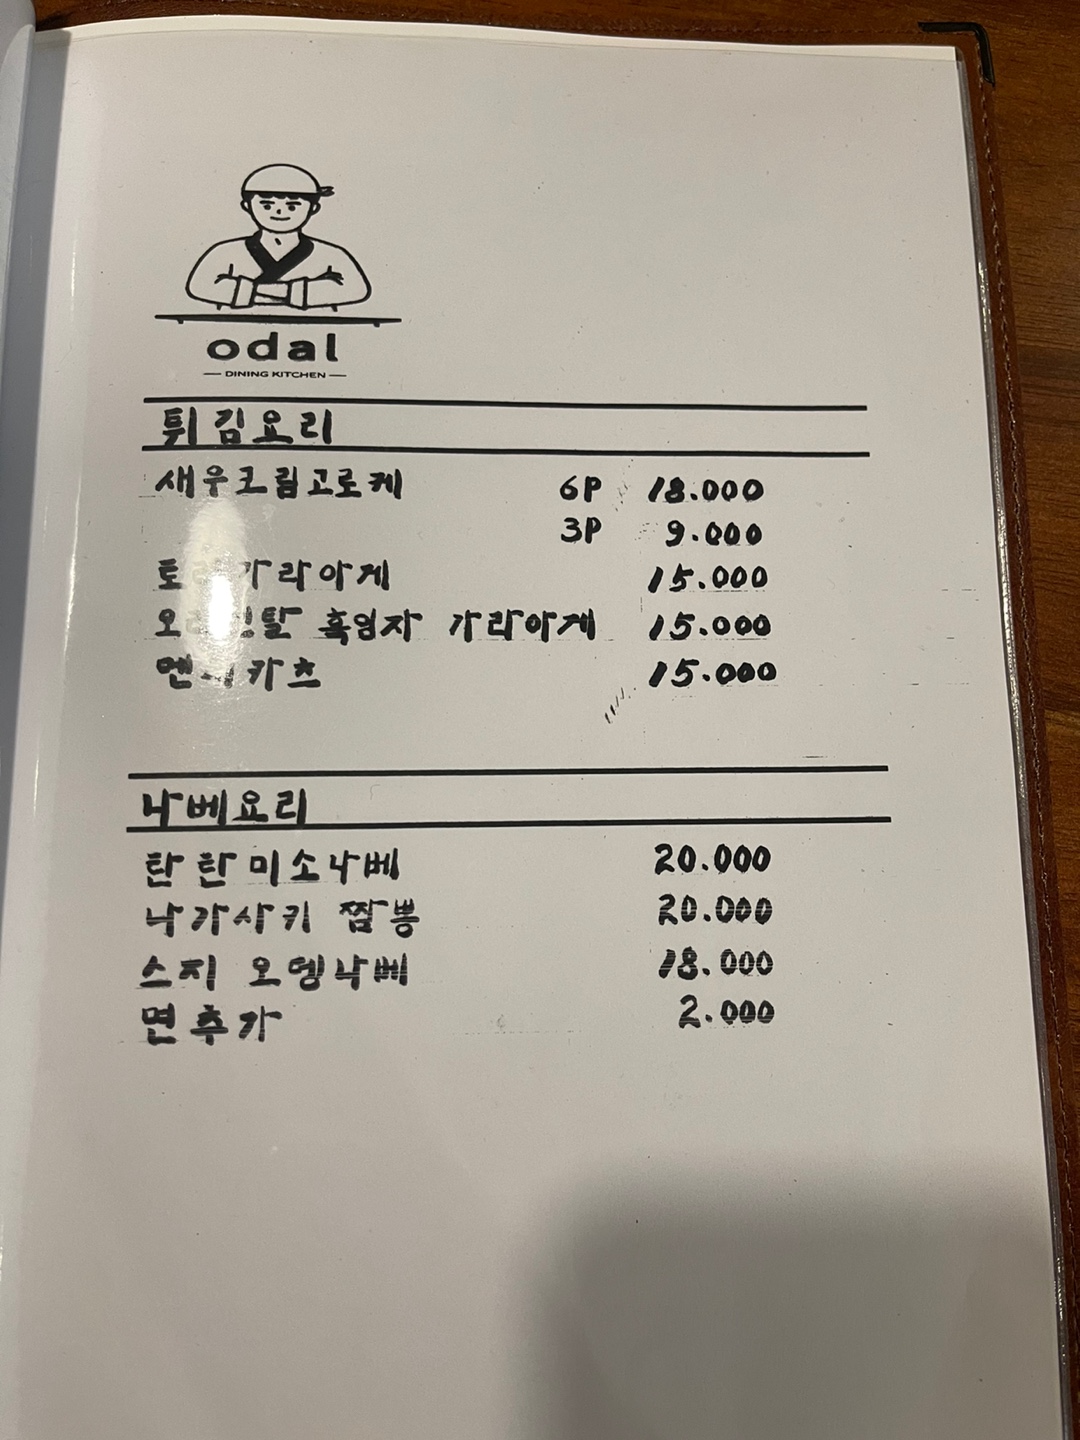 odal
DINING KITCHEN
튀김요리
새우크림고로케 6P 18.000
3P 9.000
가라아게 15.000
흑임자 가라아게 15.000
카츠 15.000
나베요리
탄탄미소나베 20.000
나가사키 짬뽕 20.000
스지 오뎅나베 18.000
면추가 2.000